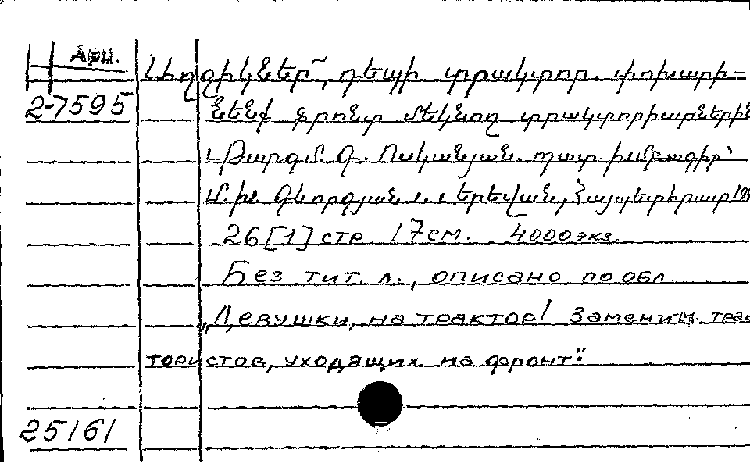 Арм.
Աղջիկներ՜, դեպի տրակտոր. փոխարի-
2-7595 նենք ֆրոնտ մեկնող տրակտորիստներին
Թարգմ. Գ. Ոսկանյան. պատ. խմբագիր՝
Գևորգյան Երեվան, Հայպետհրատ
26 [1] стр 17см. 4000экз.
Без тит. л., описано по обл
„Девушки, на трактор! Заменим трак
тористов, уходящих на фронт".
25161